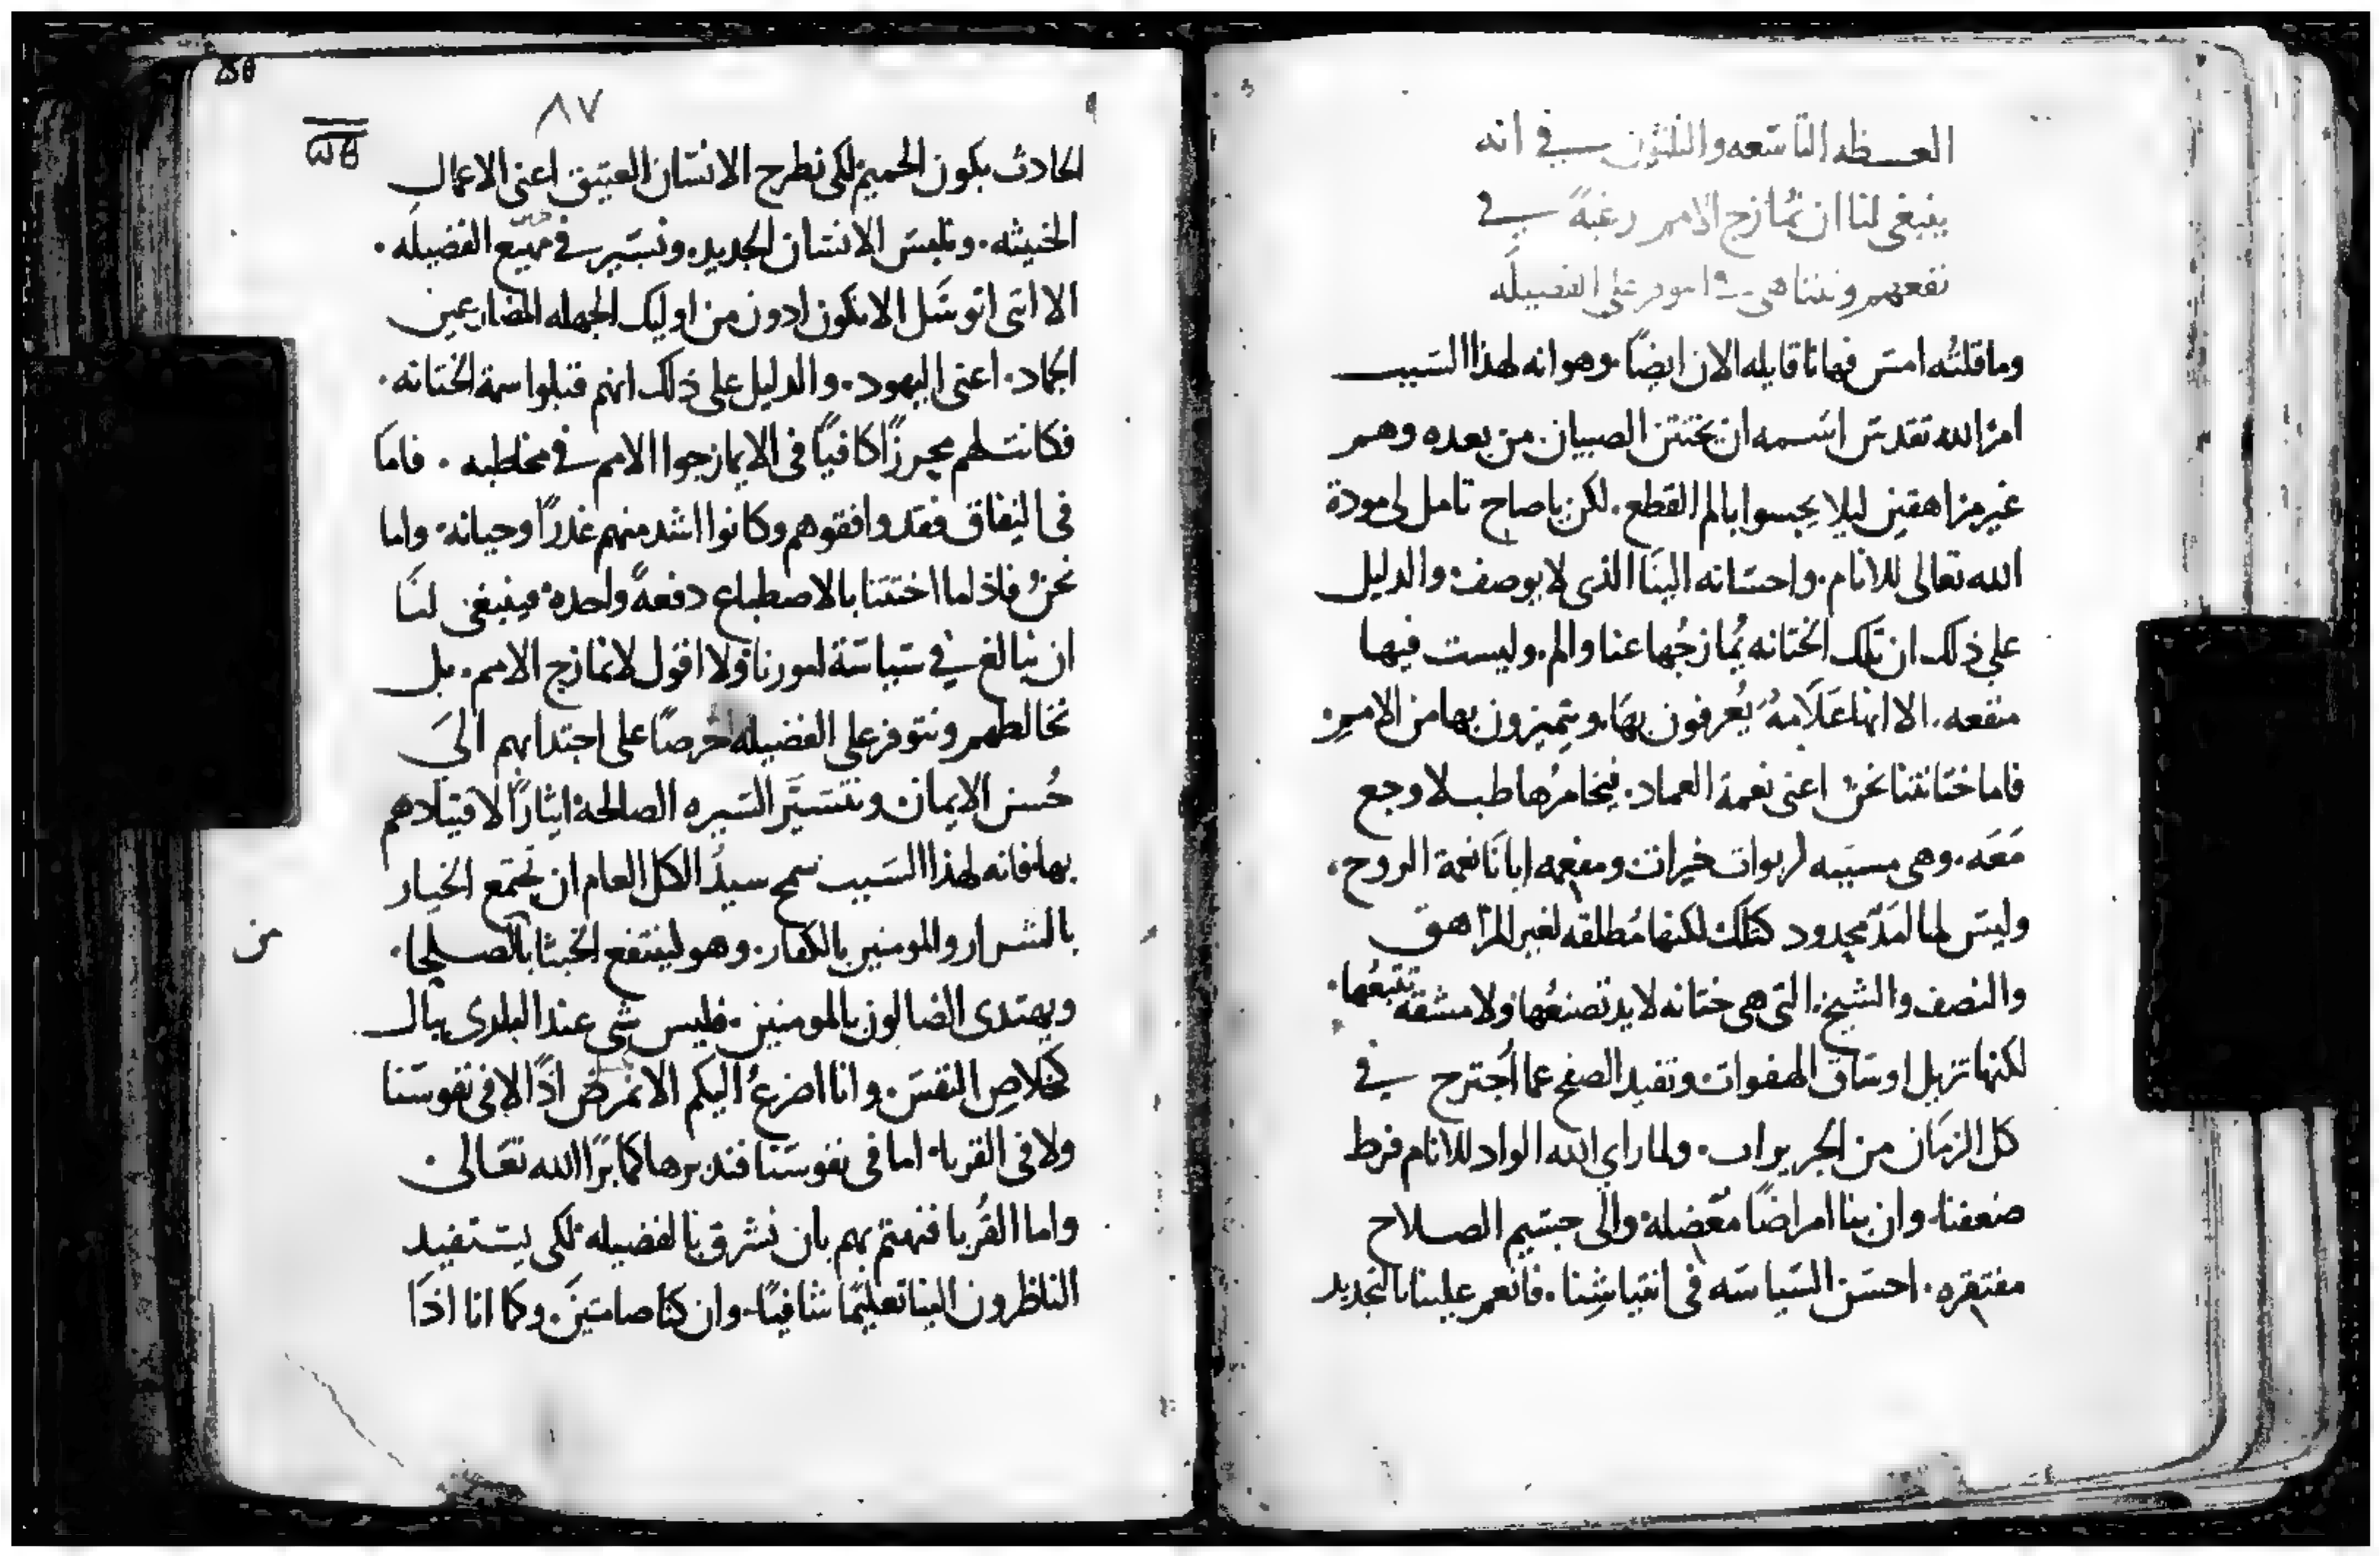 العظه التاسعه والثلثون في انه
ينبغي لنا ان نمازج الامم رغبةً في
نفعهم ونتناهى في امور على الفضيله
وما قلتُه امس فهانا قايله الان ايضًا. وهو انه لهذا السبب
امر الله تقدس اسمه ان يختتن الصبيان من بعده وهم
غير مراهقين ليلا يحسوا بالم القطع. لكن ياصاح تامل لي مودة
الله تعالى للانام. واحسانه الينا الذي لا يوصف. والدليل
على ذلك ان تلك الختانه يُمازجُها عنا والم. وليست فيها
منفعه. الا انها عَلَامةُ يُعرفون بها. ويتميزون بها من الامم.
فاما ختانتنا نحن اعني نعمة العماد. فيخامرُها طب بلا وجع
مَعَه. وهي مسببه لربوات خيرات ومفعمه ايانا نعمة الروح.
وليس لها امَدٌ محدود كتلك لكنها مُطلقه لغير المراهق
والنصف والشيخ. التي هي ختانه لا يد تصنعُها ولا مشقه تتبعُها.
لكنها تزيل اوساق الهفوات وتفيد الصفح عما اُجترح في
كل الزمان من الجريرات. ولما راي الله الواد للانام فرط
ضعفنا. وان بنا امراضًا مُعضله. والى جسيم الصلاح
مفتقره. احسن السياسه في انتياشِنا. فانعم علينا بالتجديد
٨٧
الحادث بكون الحميم لكي نطرح الانسان العتيق اعني الاعمال
الخبيثه. ونلبس الانسان الجديد. ونسير في مهيع الفضيله.
الا انني اتوسل الا نكون ادون من اوليك الجهله المضارعين
الجماد. اعني اليهود. والدليل على ذلك انهم قبلوا سمة الختانه.
فكانت لهم محرزًا كافيًا في الا يمازجوا الامم في مخاطبه. فاما
في النفاق فقد وافقوهم وكانوا اشد منهم غدرًا وخيانه. واما
نحنُ فاذ لما اختتنا بالاصطباع دفعةً واحده. فينبغي لنا
ان نبالغ في سياسة امورنا ولا اقول لا نمازج الامم. بل
نخالطهم ونتوفر على الفضيله حرصًا على اجتدابهم الى
حُسن الايمان. ونتسيَّر السيره الصالحة ايثارًا لاقتيادهم
بها. فانه لهذا السبب سمح سيدُ الكل العام ان تجتمع الخيار
بالشرار والمومنين بالكفار. وهو لينتفع الخبثا بالصلحا.
ويهتدى الضالون بالمومنين. فليس شي عند البلدي بال
كخلاص النفس. وانا اضرعُ اليكم الا نمرض اذًا لا في نفوسنا
ولا في القربا. اما في نفوسنا فندبرها كما يَرا الله تعالى.
واما القُربا فنهتم بهم بان نشرق بالفضيله. لكي يستفيد
الناظرون الينا تعليمًا شافيًا. وان كنا صامتينَ. وكما انا اذا